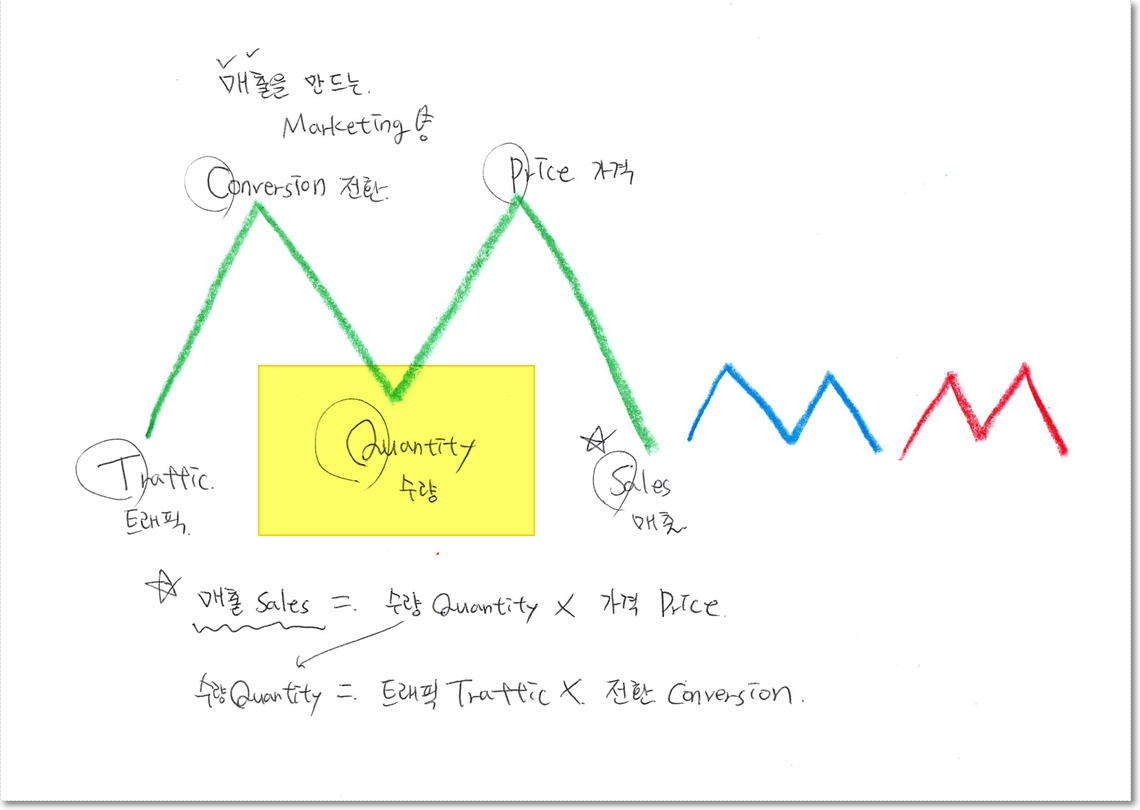 매출을 만드는.
Marketing
Conversion 전환.
Price 가격
Traffic.
트래픽.
Quantity
수량
Sales
매출.
매출 Sales =. 수량 Quantity X 가격 Price.
수량 Quantity =. 트래픽 Traffic X. 전환 Conversion.